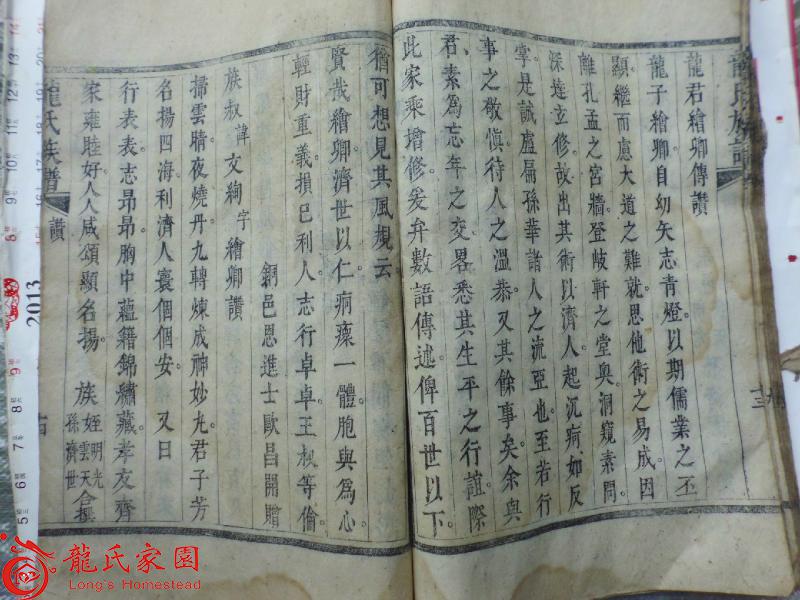 龍氏族譜
龍君繪卿傳讚
龍子繪卿自幼矢志青燈以期儒業之丕
顯繼而慮大道之難就思他術之易成因
離孔孟之宮牆登岐軒之堂奧洞窺素問
深達立修故出其術以濟人起沉疴如反
掌是誠盧扁孫華諸人之流亞也至若行
事之敬慎待人之溫恭又其餘事矣余與
君素為忘年之交畧悉其生平之行誼際
此家乘增修爰弁數語傳述俾百世以下
猶可想見其風規云
賢哉繪卿濟世以仁痌瘝一體胞與為心
輕財重義損己利人志行卓卓王叔等倫
銅邑恩進士歐昌開贈
族叔諱文絢字繪卿讚
掃雲晴夜燒丹九轉煉成神妙九君子芳
名揚四海利濟人寰個個安 又曰
行表表志昂昂胸中蘊籍錦繡藏孝友齊
家雍睦好人人咸頌顯名揚 族姪明光雲天孫濟世仝撰
龍氏族譜 讚
2013
龍氏家園
Long's Homestead